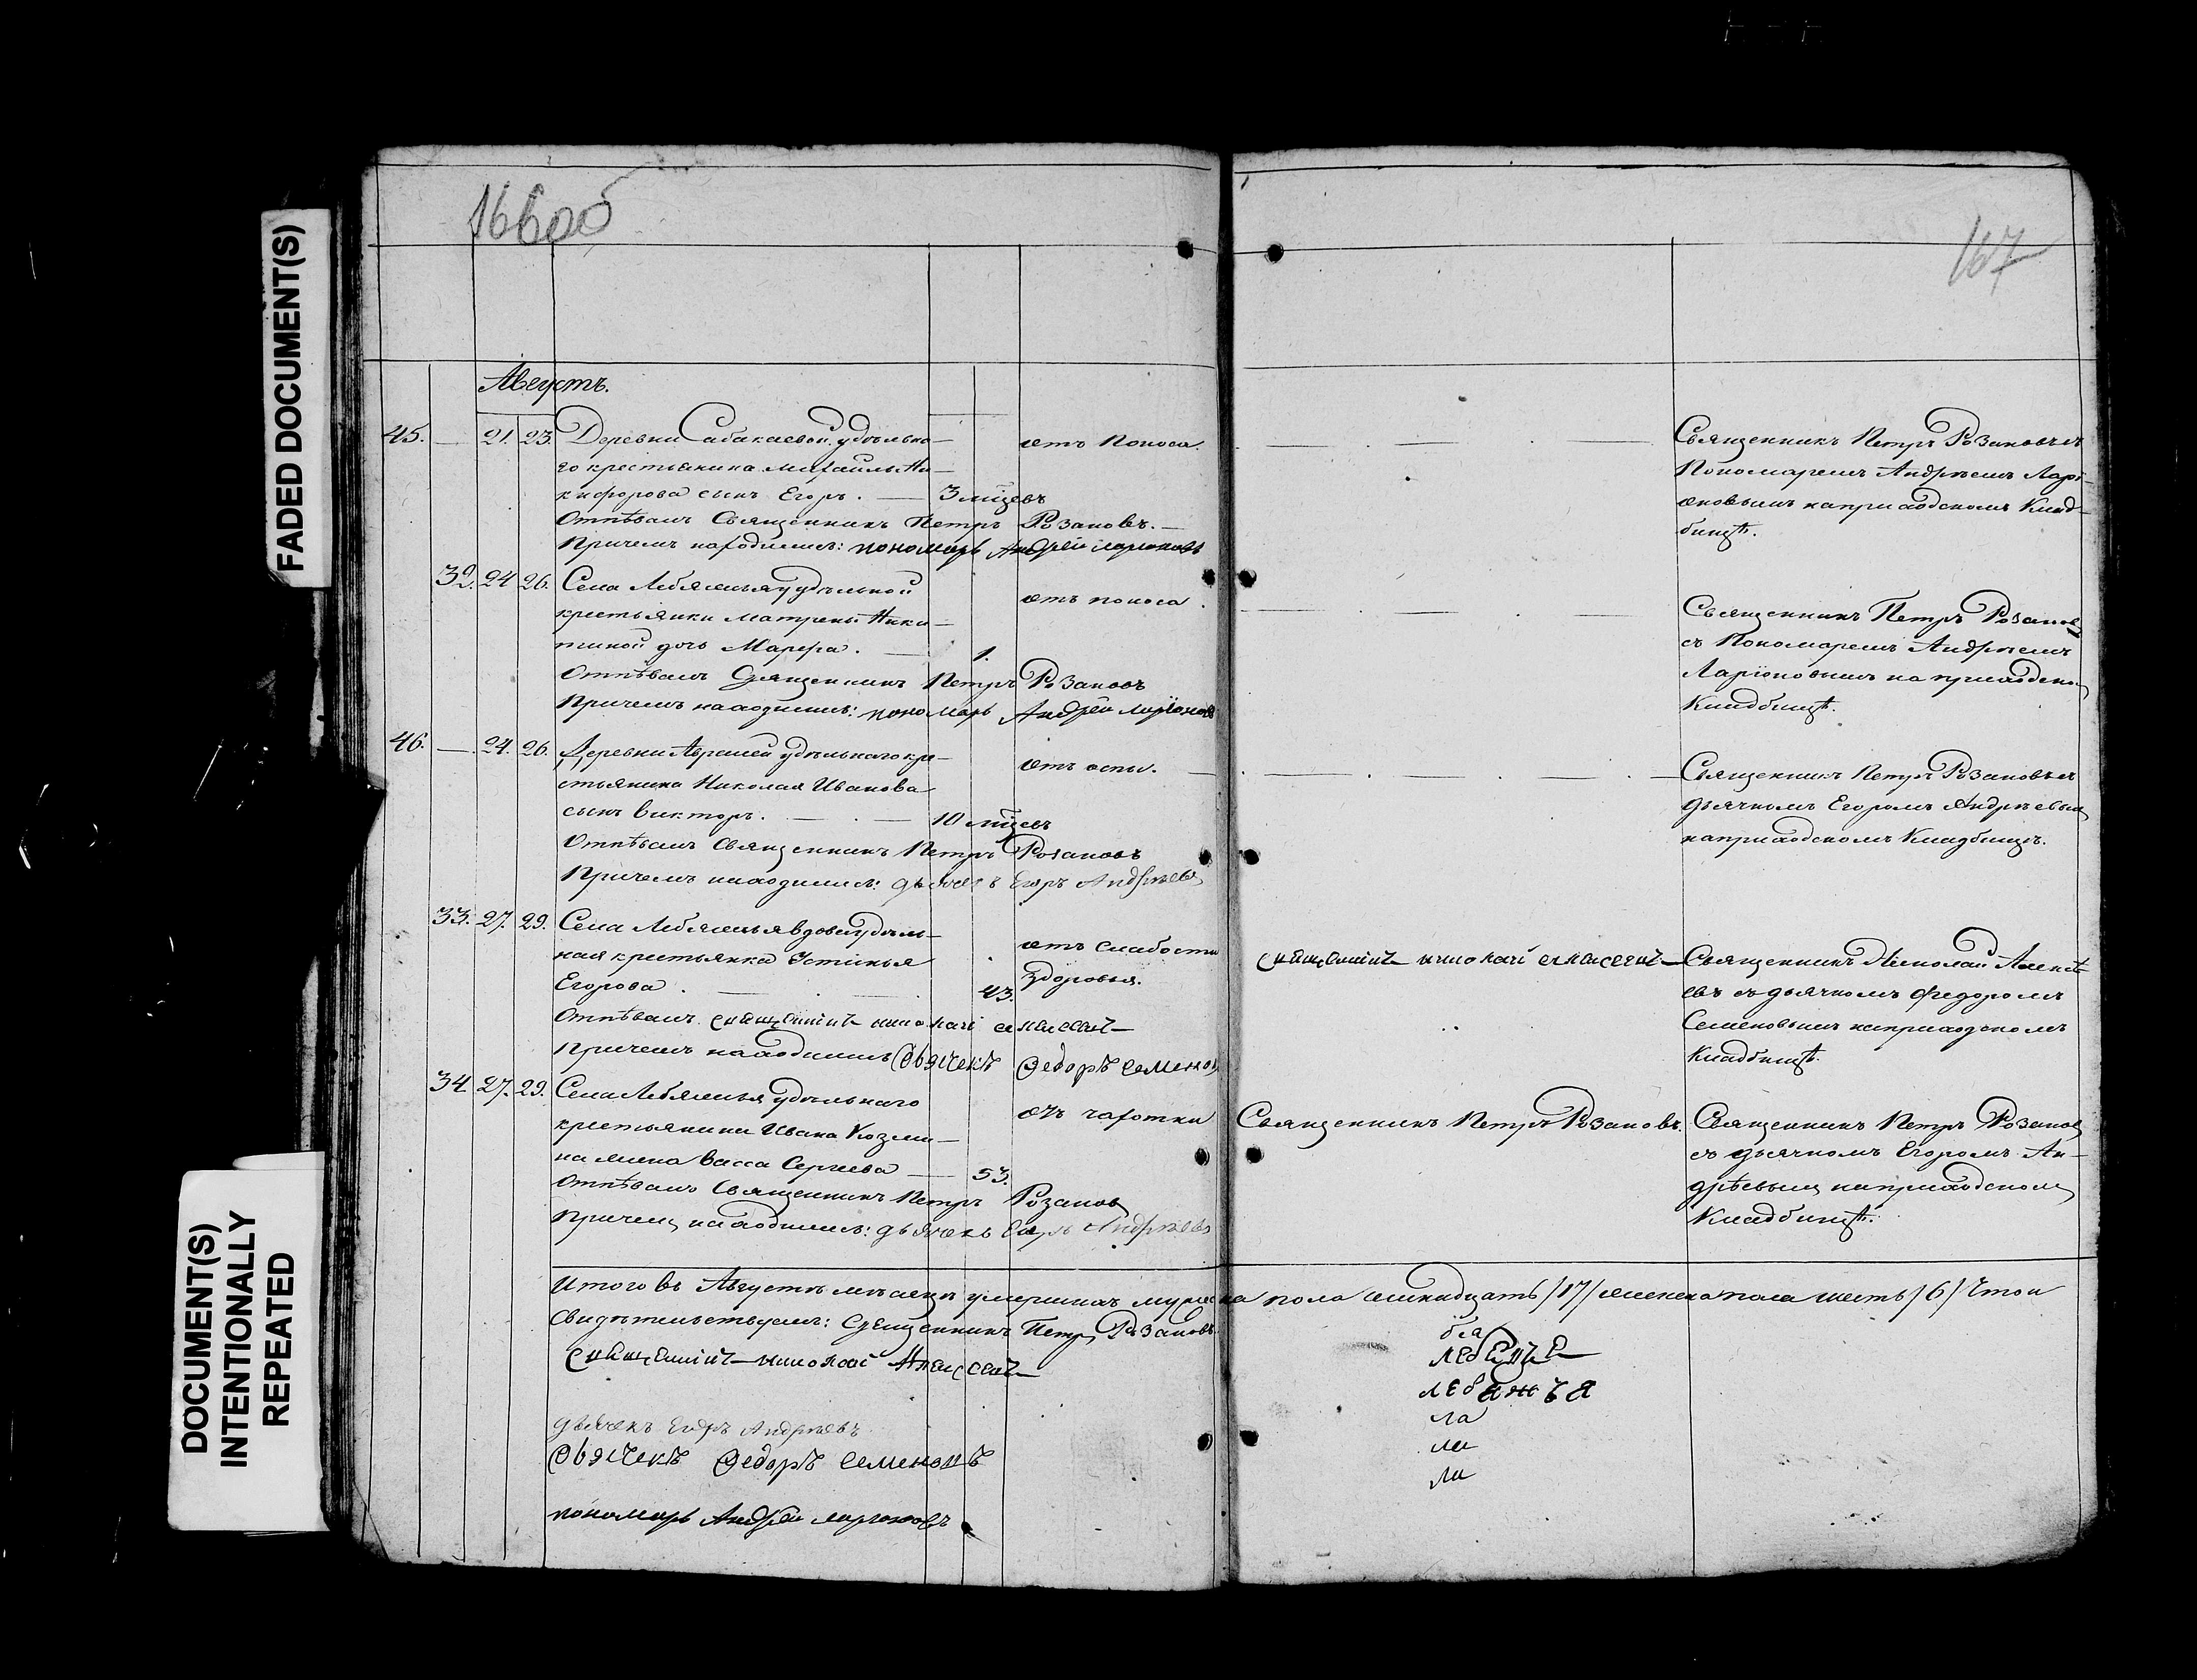 FADED DOCUMENT(S)
DOCUMENT(S)
INTENTIONALLY
REPEATED
166об
Августъ.
45. — 21. 23. Деревни Сабакаевой удѣльна-
го крестьянина Михайлы Ни-
кифорова сынъ Егоръ. — 3 мѣцевъ
отъ поноса.
Отпѣвалъ Священникъ Петръ Розановъ. —
Причемъ находились: пономарь Андрей Ларионовъ
32. 24 26. Села Лебяжья удѣльной
крестьянки Матрены Ники-
тиной дочь Марфа. — 1.
отъ поноса.
Отпѣвалъ Священникъ Петръ Розановъ
Причемъ находились: пономарь Андрей Ларіоновъ
46. — 24. 26. Деревни Авралей удѣльнаго кре-
стьянина Николая Иванова
сынъ Викторъ. — 10 мѣцевъ
отъ оспы.
Отпѣвалъ Священникъ Петръ Розановъ
Причемъ находились: дьячекъ Егоръ Андреевъ
33. 27. 29. Села Лебяжья вдова удѣль-
ная крестьянка Устинья
Егорова. — 43.
отъ слабости
здоровья.
Отпѣвалъ священникъ николай алексеевъ
Причемъ находились Дьячекъ Федоръ Семенов
34 27. 29. Села Лебяжья удѣльнаго
крестьянина Ивана Козми-
на жена Васса Сергиева — 53.
отъ чахотки
Отпѣвалъ Священникъ Петръ Розанов
Причем находились: дьячекъ Егоръ Андреевъ
Итого въ Августѣ мѣсяцѣ умершихъ мужеска пола семнадцать /17/ женска пола шесть /6/ Что и
Свидѣтельствуемъ: Священникъ Петр Розановъ.
священникъ николай Алексеевъ
дьячекъ Егоръ Андреевъ
Дьячекъ Федоръ Семеновъ
пономарь Андрей Ларионовъ
167
Священникъ Петръ Розановъ съ
Пономаремъ Андреемъ Ларі-
оновымъ на приходскомъ Клад-
бищѣ.
Священникъ Петръ Розанов
съ Пономаремъ Андреемъ
Ларіоновымъ на приходском
Кладбищѣ.
Священникъ Петръ Розановъ съ
дьячкомъ Егоромъ Андреевым
на приходскомъ Кладбищѣ.
священникъ николай алексеевъ
Священникъ Николай Алексѣ-
евъ съ дьячкомъ Федоромъ
Семеновымъ на приходскомъ
Кладбищѣ.
Священникъ Петръ Розановъ.
Священникъ Петръ Розанов
съ дьячкомъ Егоромъ Ан-
дрѣевым на приходском
Кладбищѣ.
Лебяжья
ла
ла
ла